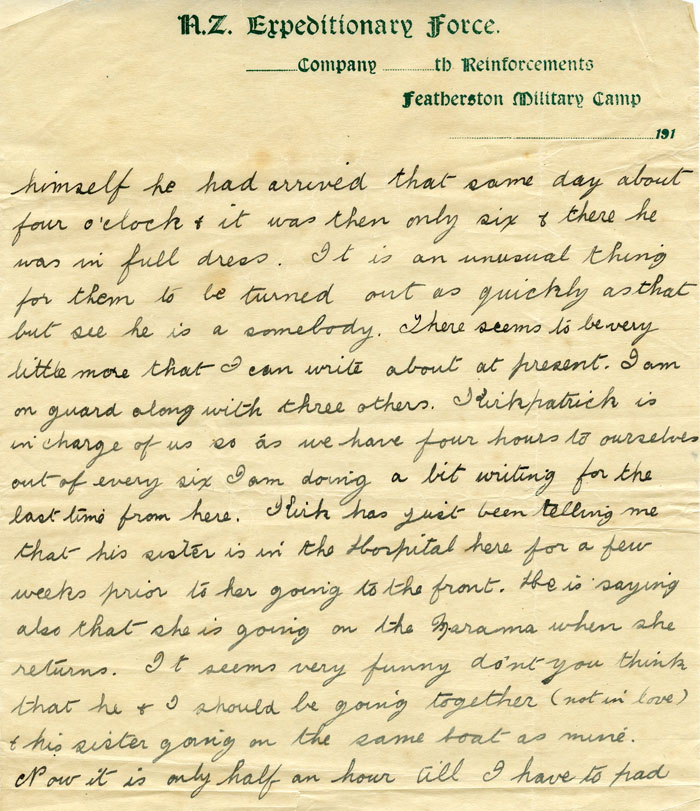 N.Z. Expeditionary Force.
Company th Reinforcements
Featherston Military Camp
191
himself he had arrived that same day about
four o'clock & it was then only six & there he
was in full dress. It is an unusual thing
for them to be turned out as quickly as that
but see he is a somebody. There seems to be very
little more that I can write about at present. I am
on guard along with three others. Kirkpatrick is
in charge of us so as we have four hours to ourselves
out of every six I am doing a bit writing for the
last time from here. Kirk has just been telling me
that his sister is in the Hospital here for a few
weeks prior to her going to the front. He is saying
also that she is going on the Marama when she
returns. It seems very funny do'nt you think
that he & I should be going together (not in love)
& his sister going on the same boat as mine.
Now it is only half an hour till I have to pad